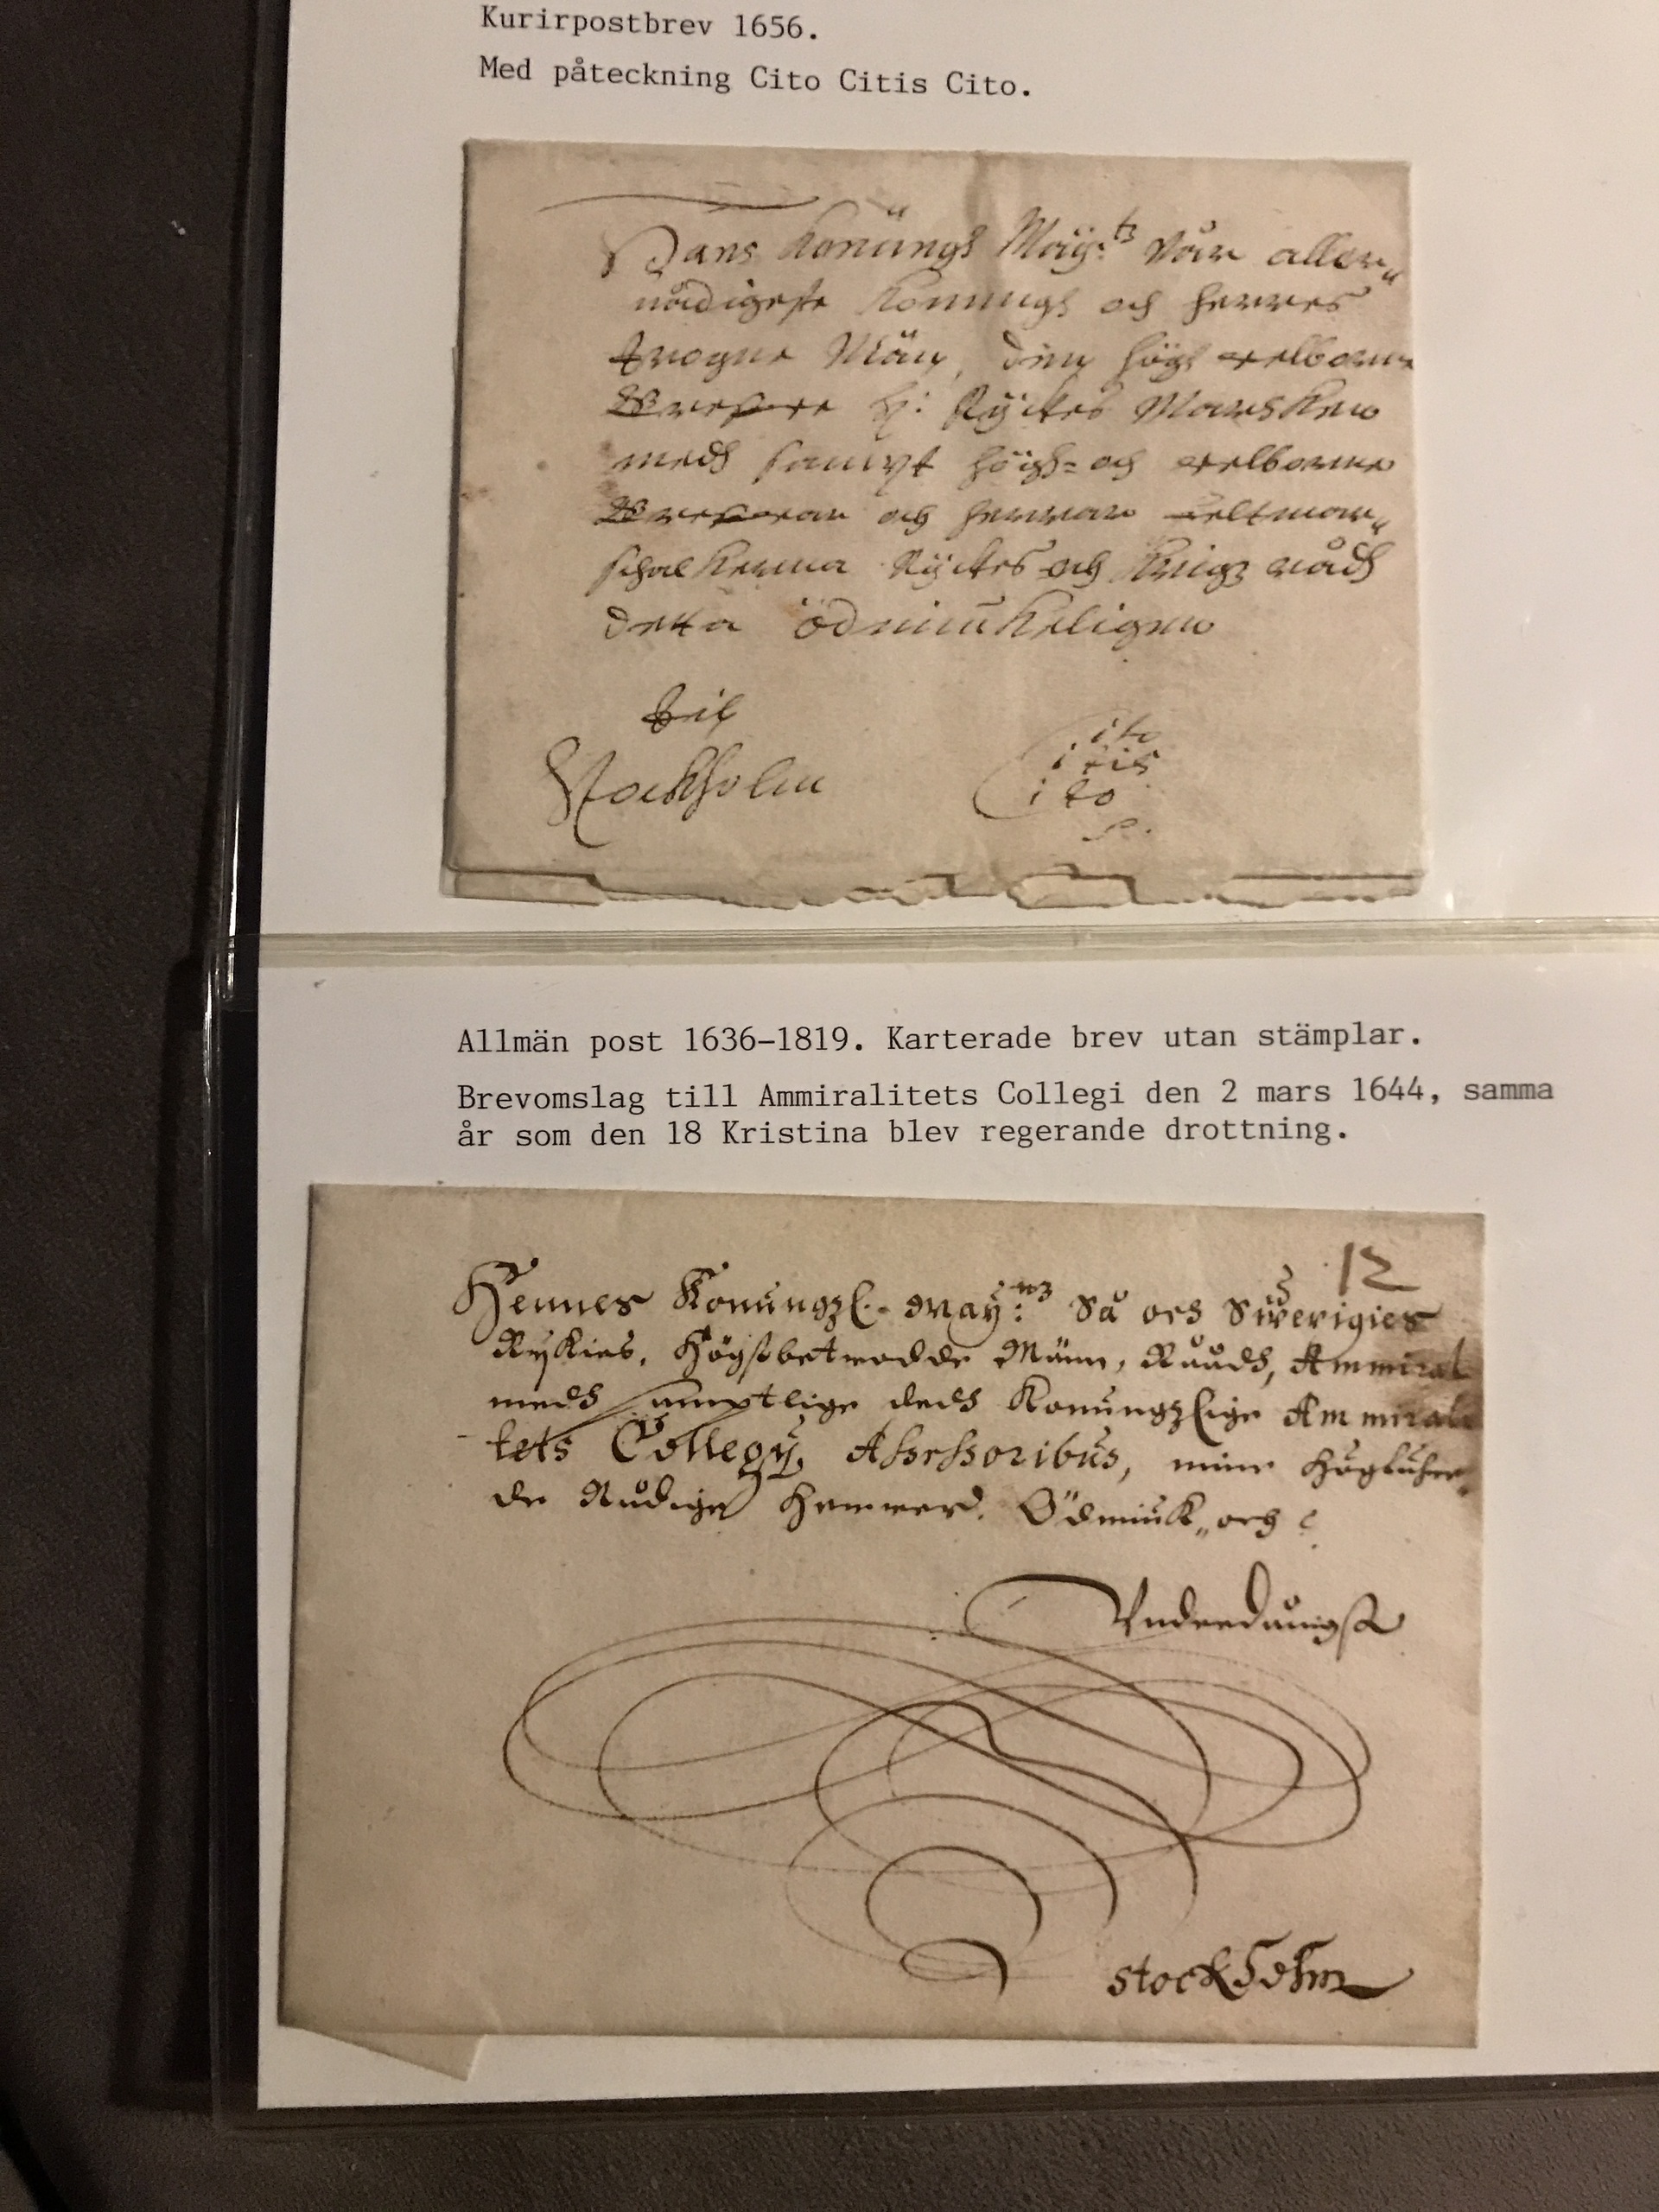 Kurirpostbrev 1656.
Med påteckning Cito Citis Cito.
Hans Konüngs Maÿ:tz Vår aller„
nådigeste Konnungs och herres
trogne Män, den högh welborne
H: Rÿckes Marsken
medh sampt högh= och welborne
och herrar veltmar„
schalkerna Rÿckes och Krigz rådh
detta ödmiukeligen
til
Stockholm
Cito
Citis
Cito
Allmän post 1636–1819. Karterade brev utan stämplar.
Brevomslag till Ammiralitets Collegi den 2 mars 1644, samma
år som den 18 Kristina blev regerande drottning.
12
Hennes Konungzl. Maÿ:tz Så och Swerigies
Rykies, Högstbetrodde Männ, Råådh, Ammiral
medh samptlige dedh Konungzlige Ammirali
tets Collegÿ Assessoribus, mine
de Nådige Herrer. Ödmiuk„ och
Vnderdånigst
Stockholm